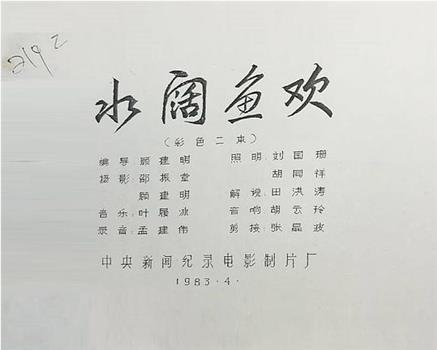 219 2
水阔鱼欢
(彩色二本)
编导 顾建明 照明 刘国珊
摄影 邵振堂 胡同祥
顾建明 解说 田洪涛
音乐 叶履冰 音响 胡云玲
录音 孟建伟 剪接 张晶波
中央新闻纪录电影制片厂
1983·4·